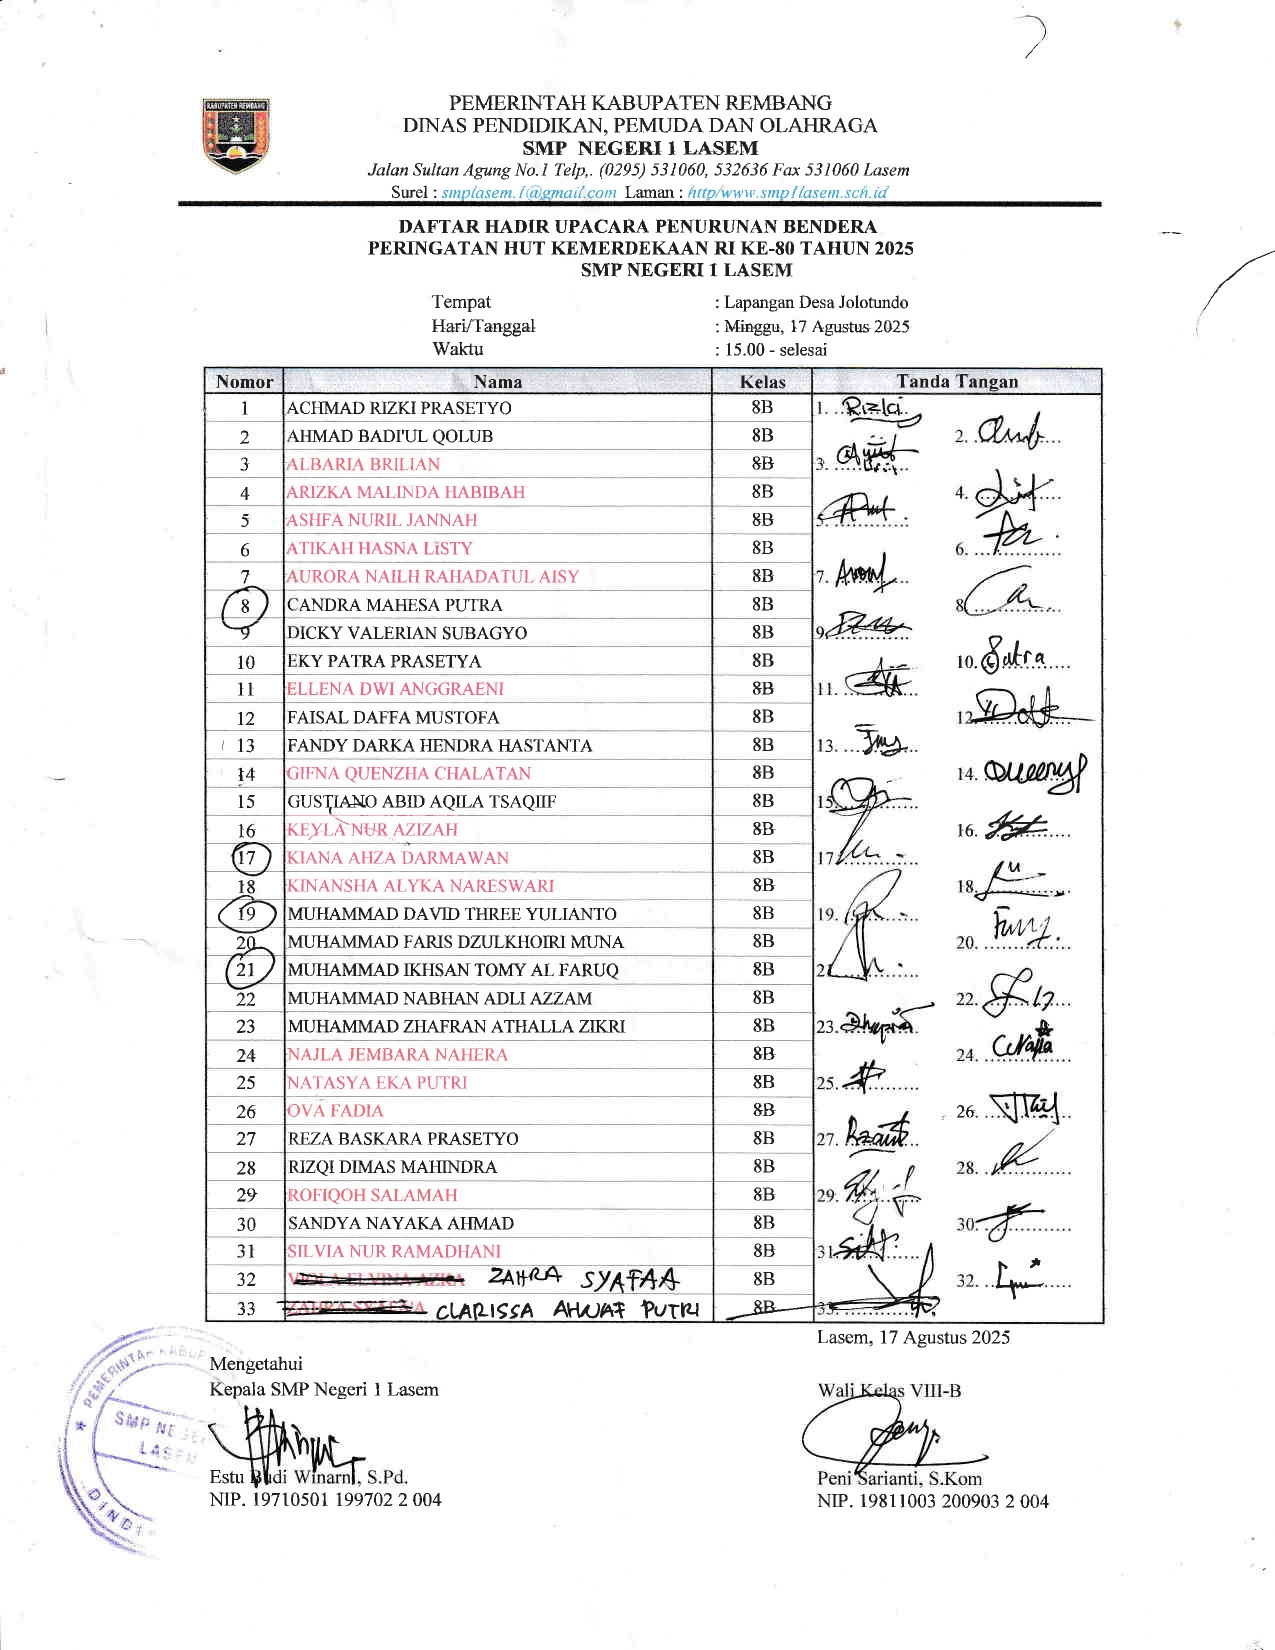 KABUPATEN REMBANG
PEMERINTAH KABUPATEN REMBANG
DINAS PENDIDIKAN, PEMUDA DAN OLAHRAGA
SMP NEGERI 1 LASEM
Jalan Sultan Agung No.1 Telp,. (0295) 531060, 532636 Fax 531060 Lasem
Surel : smplasem.1@gmail.com Laman : http/www.smp1lasem.sch.id
DAFTAR HADIR UPACARA PENURUNAN BENDERA
PERINGATAN HUT KEMERDEKAAN RI KE-80 TAHUN 2025
SMP NEGERI 1 LASEM
Tempat : Lapangan Desa Jolotundo
Hari/Tanggal : Minggu, 17 Agustus 2025
Waktu : 15.00 - selesai
Nomor Nama Kelas Tanda Tangan
1 ACHMAD RIZKI PRASETYO 8B 1. Rizki
2 AHMAD BADI'UL QOLUB 8B 2.
3 ALBARIA BRILIAN 8B 3.
4 ARIZKA MALINDA HABIBAH 8B 4.
5 ASHFA NURIL JANNAH 8B 5.
6 ATIKAH HASNA LiSTY 8B 6.
7 AURORA NAILH RAHADATUL AISY 8B 7.
8 CANDRA MAHESA PUTRA 8B 8.
9 DICKY VALERIAN SUBAGYO 8B 9.
10 EKY PATRA PRASETYA 8B 10.
11 ELLENA DWI ANGGRAENI 8B 11.
12 FAISAL DAFFA MUSTOFA 8B 12.
13 FANDY DARKA HENDRA HASTANTA 8B 13.
14 GIFNA QUENZHA CHALATAN 8B 14.
15 GUSTIANO ABID AQILA TSAQIIF 8B 15.
16 KEYLA NUR AZIZAH 8B 16.
17 KIANA AHZA DARMAWAN 8B 17.
18 KINANSHA ALYKA NARESWARI 8B 18.
19 MUHAMMAD DAVID THREE YULIANTO 8B 19.
20 MUHAMMAD FARIS DZULKHOIRI MUNA 8B 20.
21 MUHAMMAD IKHSAN TOMY AL FARUQ 8B 21.
22 MUHAMMAD NABHAN ADLI AZZAM 8B 22.
23 MUHAMMAD ZHAFRAN ATHALLA ZIKRI 8B 23.
24 NAJLA JEMBARA NAHERA 8B 24.
25 NATASYA EKA PUTRI 8B 25.
26 OVA FADIA 8B 26.
27 REZA BASKARA PRASETYO 8B 27.
28 RIZQI DIMAS MAHINDRA 8B 28.
29 ROFIQOH SALAMAH 8B 29.
30 SANDYA NAYAKA AHMAD 8B 30.
31 SILVIA NUR RAMADHANI 8B 31.
32 VIOLA ELVINA AZRA ZAHRA SYAFAA 8B 32.
33 CLARISSA AHWAF PUTRI 8B 33.
Lasem, 17 Agustus 2025
Mengetahui
Kepala SMP Negeri 1 Lasem Wali Kelas VIII-B
PEMERINTAH KABUP
SMP NEGER
LASEM
DINDI
Estu Budi Winarni, S.Pd. Peni Sarianti, S.Kom
NIP. 19710501 199702 2 004 NIP. 19811003 200903 2 004